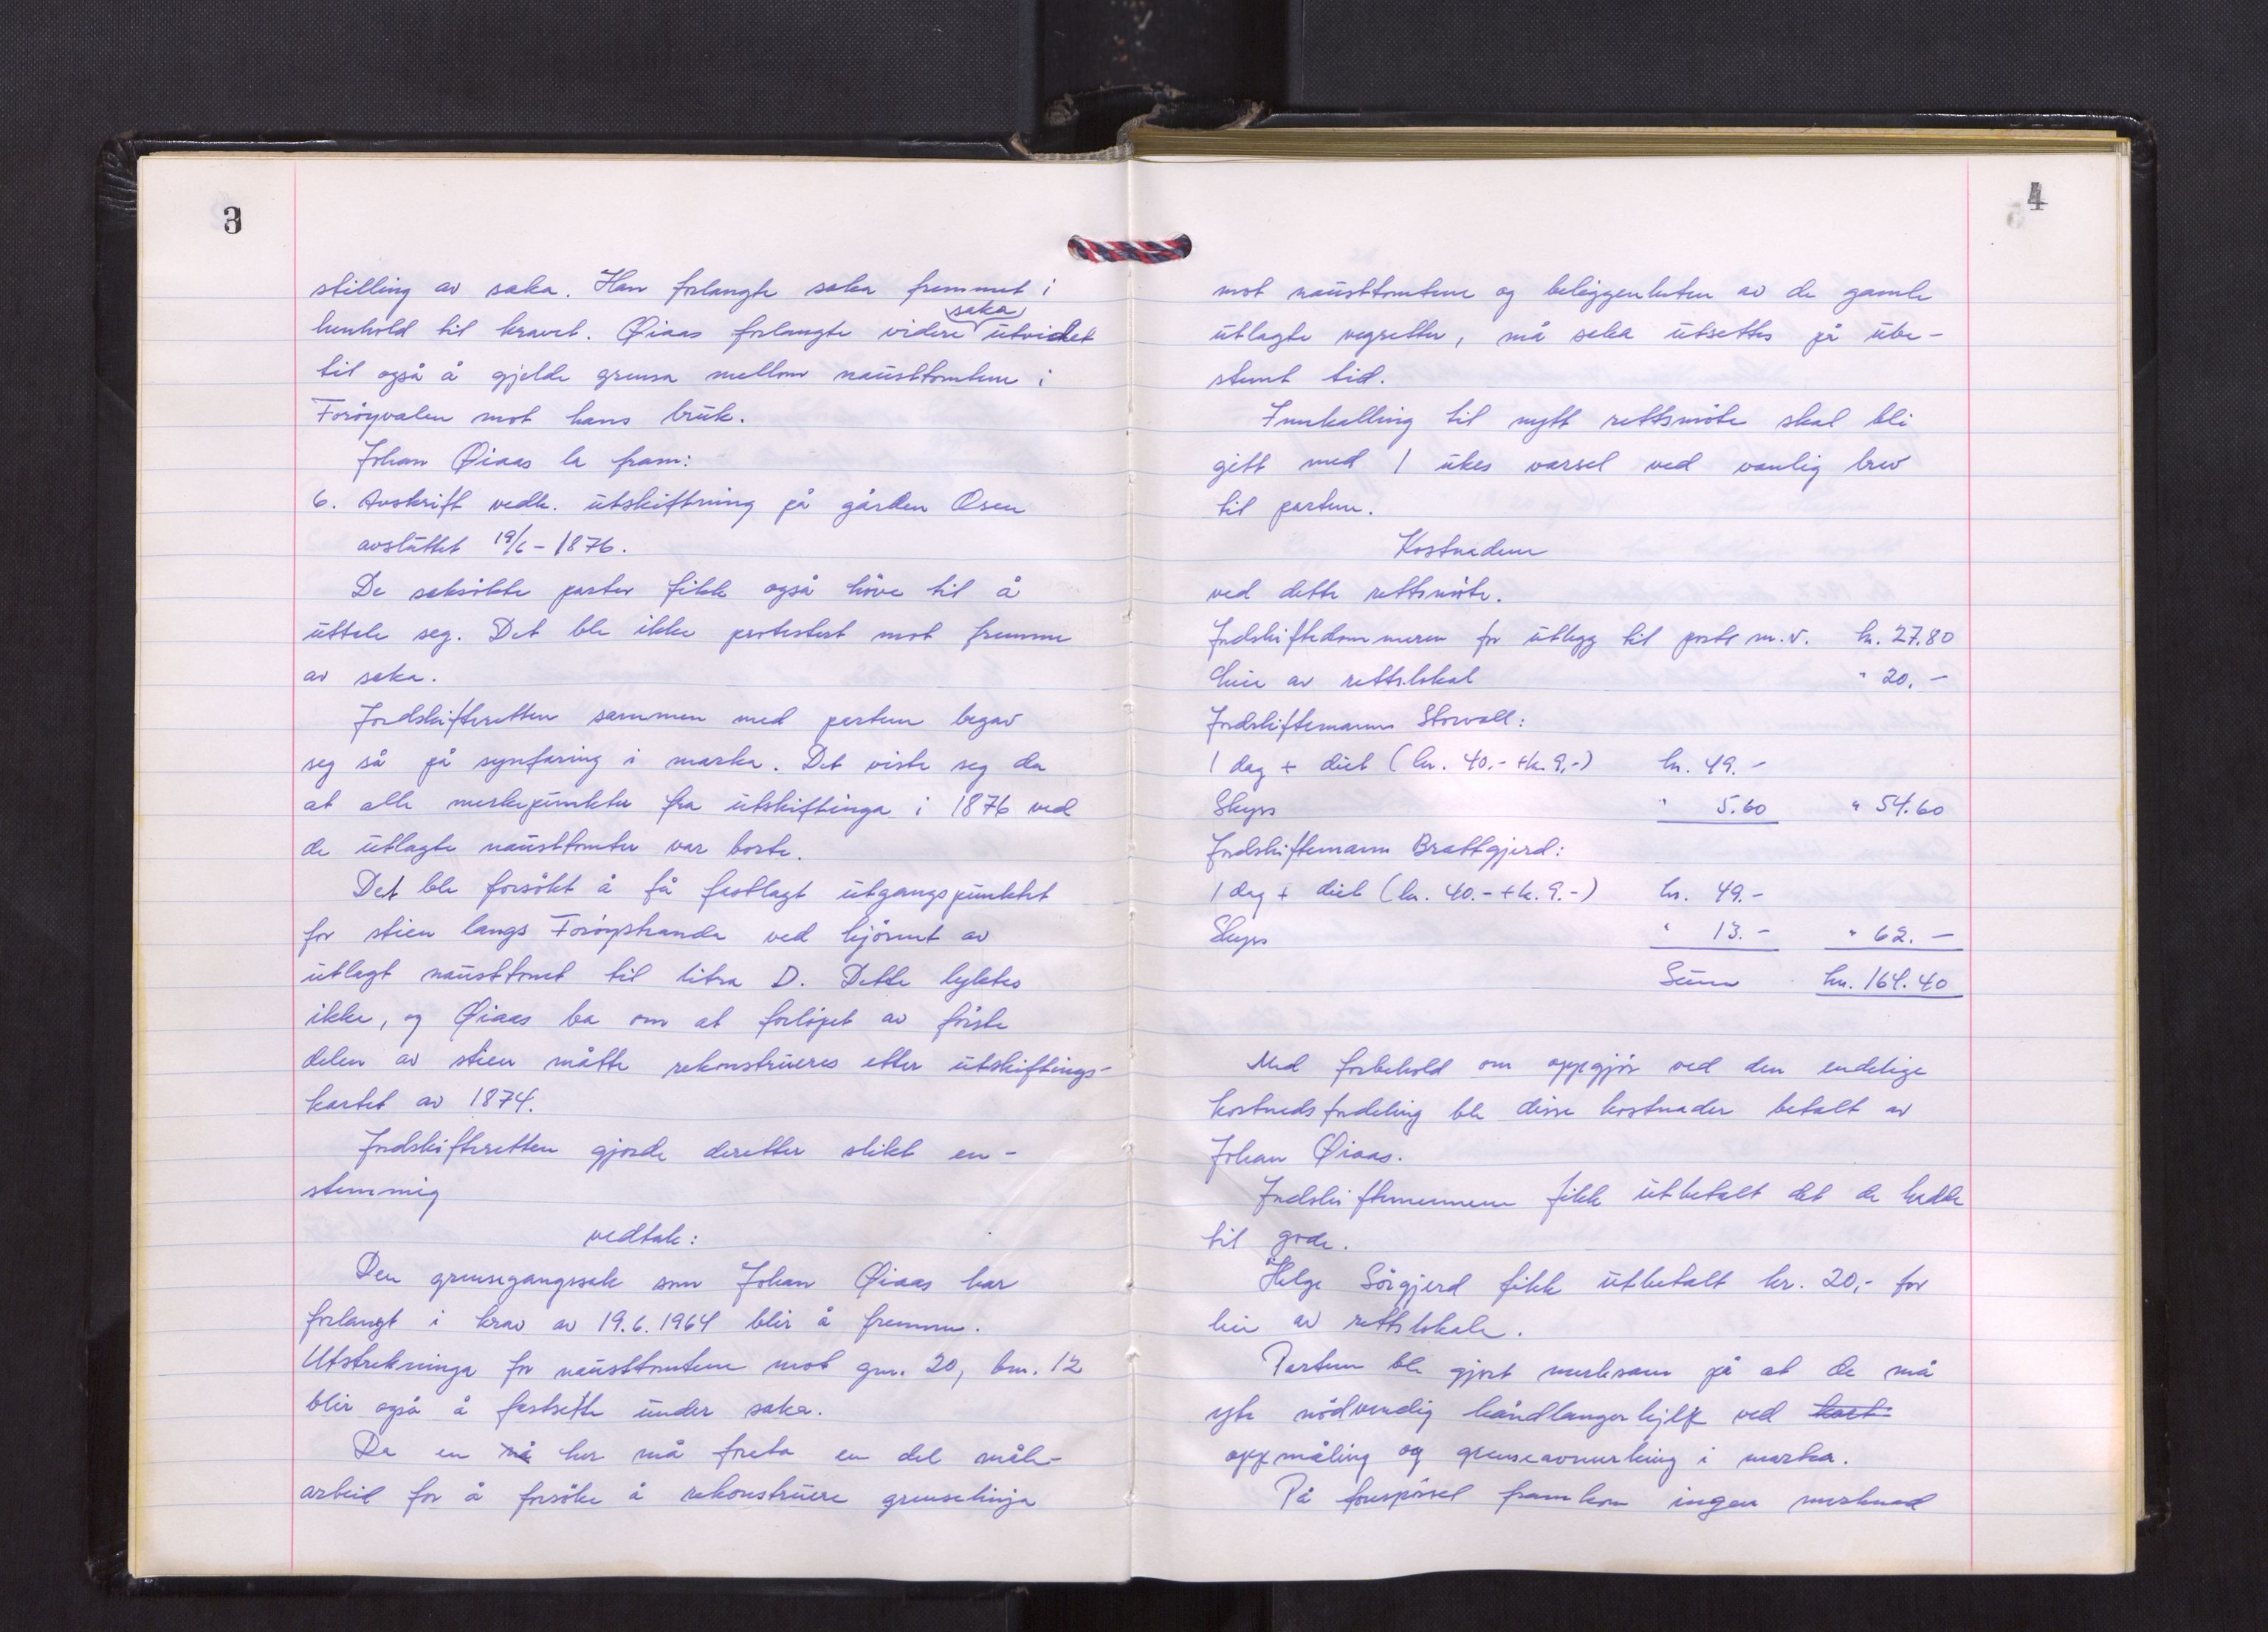 3
stilling av saka. Han forlangte saka fremmet i
henhold til kravet. Øiaas forlangte videre saka utvidet
til også å gjelde grensa mellom nausttomtene i
Forøyvalen mot hans bruk.
Johan Øiaas la fram:
6. Avskrift vedk. utskiftning på gården Osen
avsluttet 19/6-1876.
De saksøkte parter fikk også høve til å
uttale seg. Det ble ikke protestert mot fremme
av saka.
Jordskifteretten sammen med partene begav
seg så på synfaring i marka. Det viste seg da
at alle merkepunkter fra utskiftinga i 1876 ved
de utlagte nausttomter var borte.
Det ble forsøkt å få fastlagt utgangspunktet
for stien langs Forøystranda ved hjørnet av
utlagt nausttomt til litra D. Dette lyktes
ikke, og Øiaas ba om at forløpet av første
delen av stien måtte rekonstrueres etter utskiftings-
kartet av 1874.
Jordskifteretten gjorde deretter slikt en-
stemmig
vedtak:
Den grensegangssak som Johan Øiaas har
forlangt i krav av 19.6.1964 blir å fremme.
Utstrekninga for nausttomtene mot gnr. 20, bnr. 12
blir også å fastsette under saka.
Da en må her må foreta en del måle-
arbeid for å forsøke å rekonstruere grenselinja
4
mot nausttomtene og beliggenheten av de gamle
utlagte vegretter, må saka utsettes på ube-
stemt tid.
Innkalling til nytt rettsmøte skal bli
gitt med 1 ukes varsel ved vanlig brev
til partene.
Kostnadene
ved dette rettsmøte.
Jordskiftedommeren for utlegg til porto m.v. kr. 27.80
Leie av rettslokal " 20.-
Jordskiftemann Storvoll:
1 dag + diet (kr. 40.- + kr. 9.-) kr. 49.-
Skyss " 5.60 " 54.60
Jordskiftemann Brattgjerd:
1 dag + diet (kr. 40.- + kr. 9.-) kr. 49.-
Skyss " 13.- " 62.-
Sum kr. 164.40
Med forbehold om oppgjør ved den endelige
kostnadsfordeling ble disse kostnader betalt av
Johan Øiaas.
Jordskiftemennene fikk utbetalt det de hadde
til gode.
Helge Sørgjerd fikk utbetalt kr. 20,- for
leie av rettslokale.
Partene ble gjort merksam på at de må
yte nødvendig håndlangerhjelp ved kart-
oppmåling og grenseavmerking i marka.
På forespørsel framkom ingen merknad